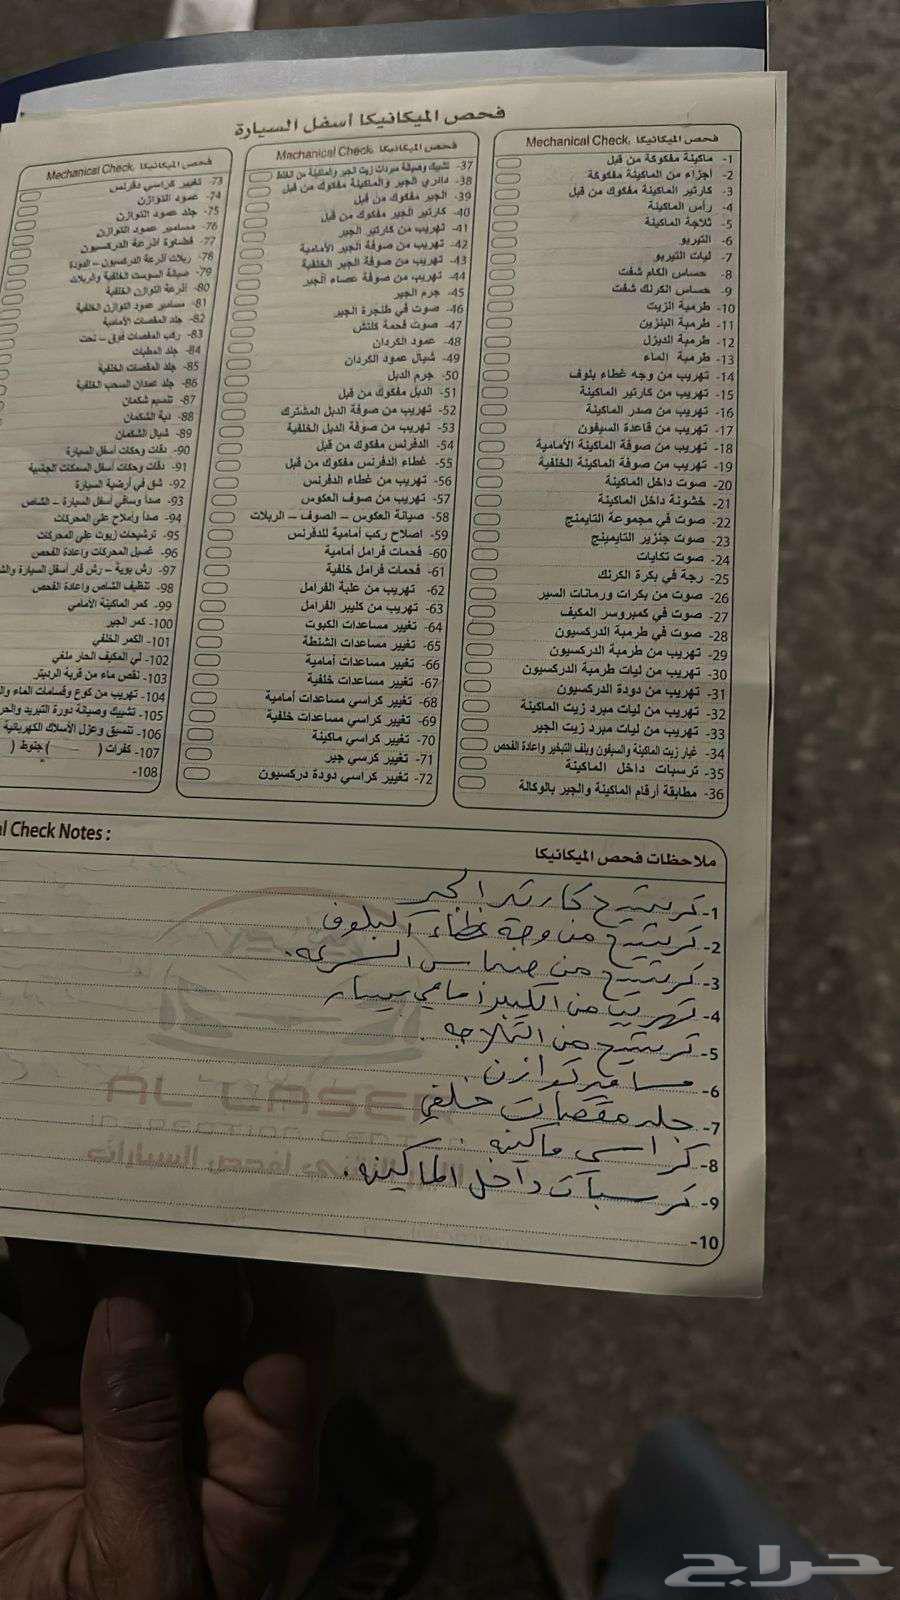 فحص الميكانيكا أسفل السيارة
فحص الميكانيكا Mechanical Check.
1- ماكينة مفكوكة من قبل
2- اجزاء من الماكينة مفكوكة
3- كارتير الماكينة مفكوك من قبل
4- رأس الماكينة
5- ثلاجة الماكينة
6- التيربو
7- ليات التيربو
8- حساس الكام شفت
9- حساس الكرنك شفت
10- طرمبة الزيت
11- طرمبة البنزين
12- طرمبة الديزل
13- طرمبة الماء
14- تهريب من وجه غطاء بلوف
15- تهريب من كارتير الماكينة
16- تهريب من صدر الماكينة
17- تهريب من قاعدة السيفون
18- تهريب من صوفة الماكينة الأمامية
19- تهريب من صوفة الماكينة الخلفية
20- صوت داخل الماكينة
21- خشونة داخل الماكينة
22- صوت في مجموعة التايمنج
23- صوت جنزير التايمينج
24- صوت تكايات
25- رجة في بكرة الكرنك
26- صوت من بكرات ورمانات السير
27- صوت في كمبروسر المكيف
28- صوت في طرمبة الدركسيون
29- تهريب من طرمبة الدركسيون
30- تهريب من ليات طرمبة الدركسيون
31- تهريب من دودة الدركسيون
32- تهريب من ليات مبرد زيت الماكينة
33- تهريب من ليات مبرد زيت الجير
34- غيار زيت الماكينة والسيفون وبلف التبخير واعادة الفحص
35- ترسبات داخل الماكينة
36- مطابقة أرقام الماكينة والجير بالوكالة
فحص الميكانيكا Mechanical Check.
37- تشييك وصيانة مبردات زيت الجير والماكينة من الخلط
38- دائري الجير والماكينة مفكوك من قبل
39- الجير مفكوك من قبل
40- كارتير الجير مفكوك من قبل
41- تهريب من كارتير الجير
42- تهريب من صوفة الجير الأمامية
43- تهريب من صوفة الجير الخلفية
44- تهريب من صوفة عصاء الجير
45- جرم الجير
46- صوت في طنجرة الجير
47- صوت فحمة كلتش
48- عمود الكردان
49- شيال عمود الكردان
50- جرم الدبل
51- الدبل مفكوك من قبل
52- تهريب من صوفة الدبل المشترك
53- تهريب من صوفة الدبل الخلفية
54- الدفرنس مفكوك من قبل
55- غطاء الدفرنس مفكوك من قبل
56- تهريب من غطاء الدفرنس
57- تهريب من صوف العكوس
58- صيانة العكوس – الصوف – الربلات
59- اصلاح ركب أمامية للدفرنس
60- فحمات فرامل أمامية
61- فحمات فرامل خلفية
62- تهريب من علبة الفرامل
63- تهريب من كليبر الفرامل
64- تغيير مساعدات الكبوت
65- تغيير مساعدات الشنطة
66- تغيير مساعدات أمامية
67- تغيير مساعدات خلفية
68- تغيير كراسي مساعدات أمامية
69- تغيير كراسي مساعدات خلفية
70- تغيير كراسي ماكينة
71- تغيير كرسي جير
72- تغيير كراسي دودة دركسيون
فحص الميكانيكا Mechanical Check.
73- تغيير كراسي دفرنس
74- عمود التوازن
75- جلد عمود التوازن
76- مسامير عمود التوازن
77- فضاوة أذرعة الدركسيون
78- ربلات أذرعة الدركسيون – الدودة
79- صيانة السوست الخلفية والربلات
80- أذرعة التوازن الخلفية
81- مسامير عمود التوازن الخلفية
82- جلد المقصات الأمامية
83- ركب المقصات فوق – تحت
84- جلد المطبات
85- جلد المقصات الخلفية
86- جلد عمدان السحب الخلفية
87- تنسيم شكمان
88- دبة الشكمان
89- شيال الشكمان
90- دقات وحكات أسفل السيارة
91- دقات وحكات أسفل السمكات الجنبية
92- شق في أرضية السيارة
93- صدأ وسافي أسفل السيارة – الشاص
94- صدأ وإملاح على المحركات
95- ترشيحات زيوت على المحركات
96- غسيل المحركات وإعادة الفحص
97- رش بوية – رش قار أسفل السيارة
98- تنظيف الشاص وإعادة الفحص
99- كمر الماكينة الأمامي
100- كمر الجير
101- الكمر الخلفي
102- لي المكيف الحار ملغي
103- نقص ماء من قربة الرديتر
104- تهريب من كوع وقسامات الماء
105- تشييك وصيانة دورة التبريد
106- تنسيق وعزل الأسلاك الكهربائية
107- كفرات ( ) جنوط (
108-
Check Notes :
ملاحظات فحص الميكانيكا
1- ترشيح كارتير الجير
2- ترشيح من وجة غطاء البلوف
3- ترشيح من حساس السرعه.
4- تهريب من الكليبر أمامي يسار
5- ترشيح من الثلاجه.
6- مسامير توازن.
7- جلد مقصات خلفي
8- كراسي ماكينه.
9- ترسبات داخل الماكينه.
10-
AL LASER
حراج